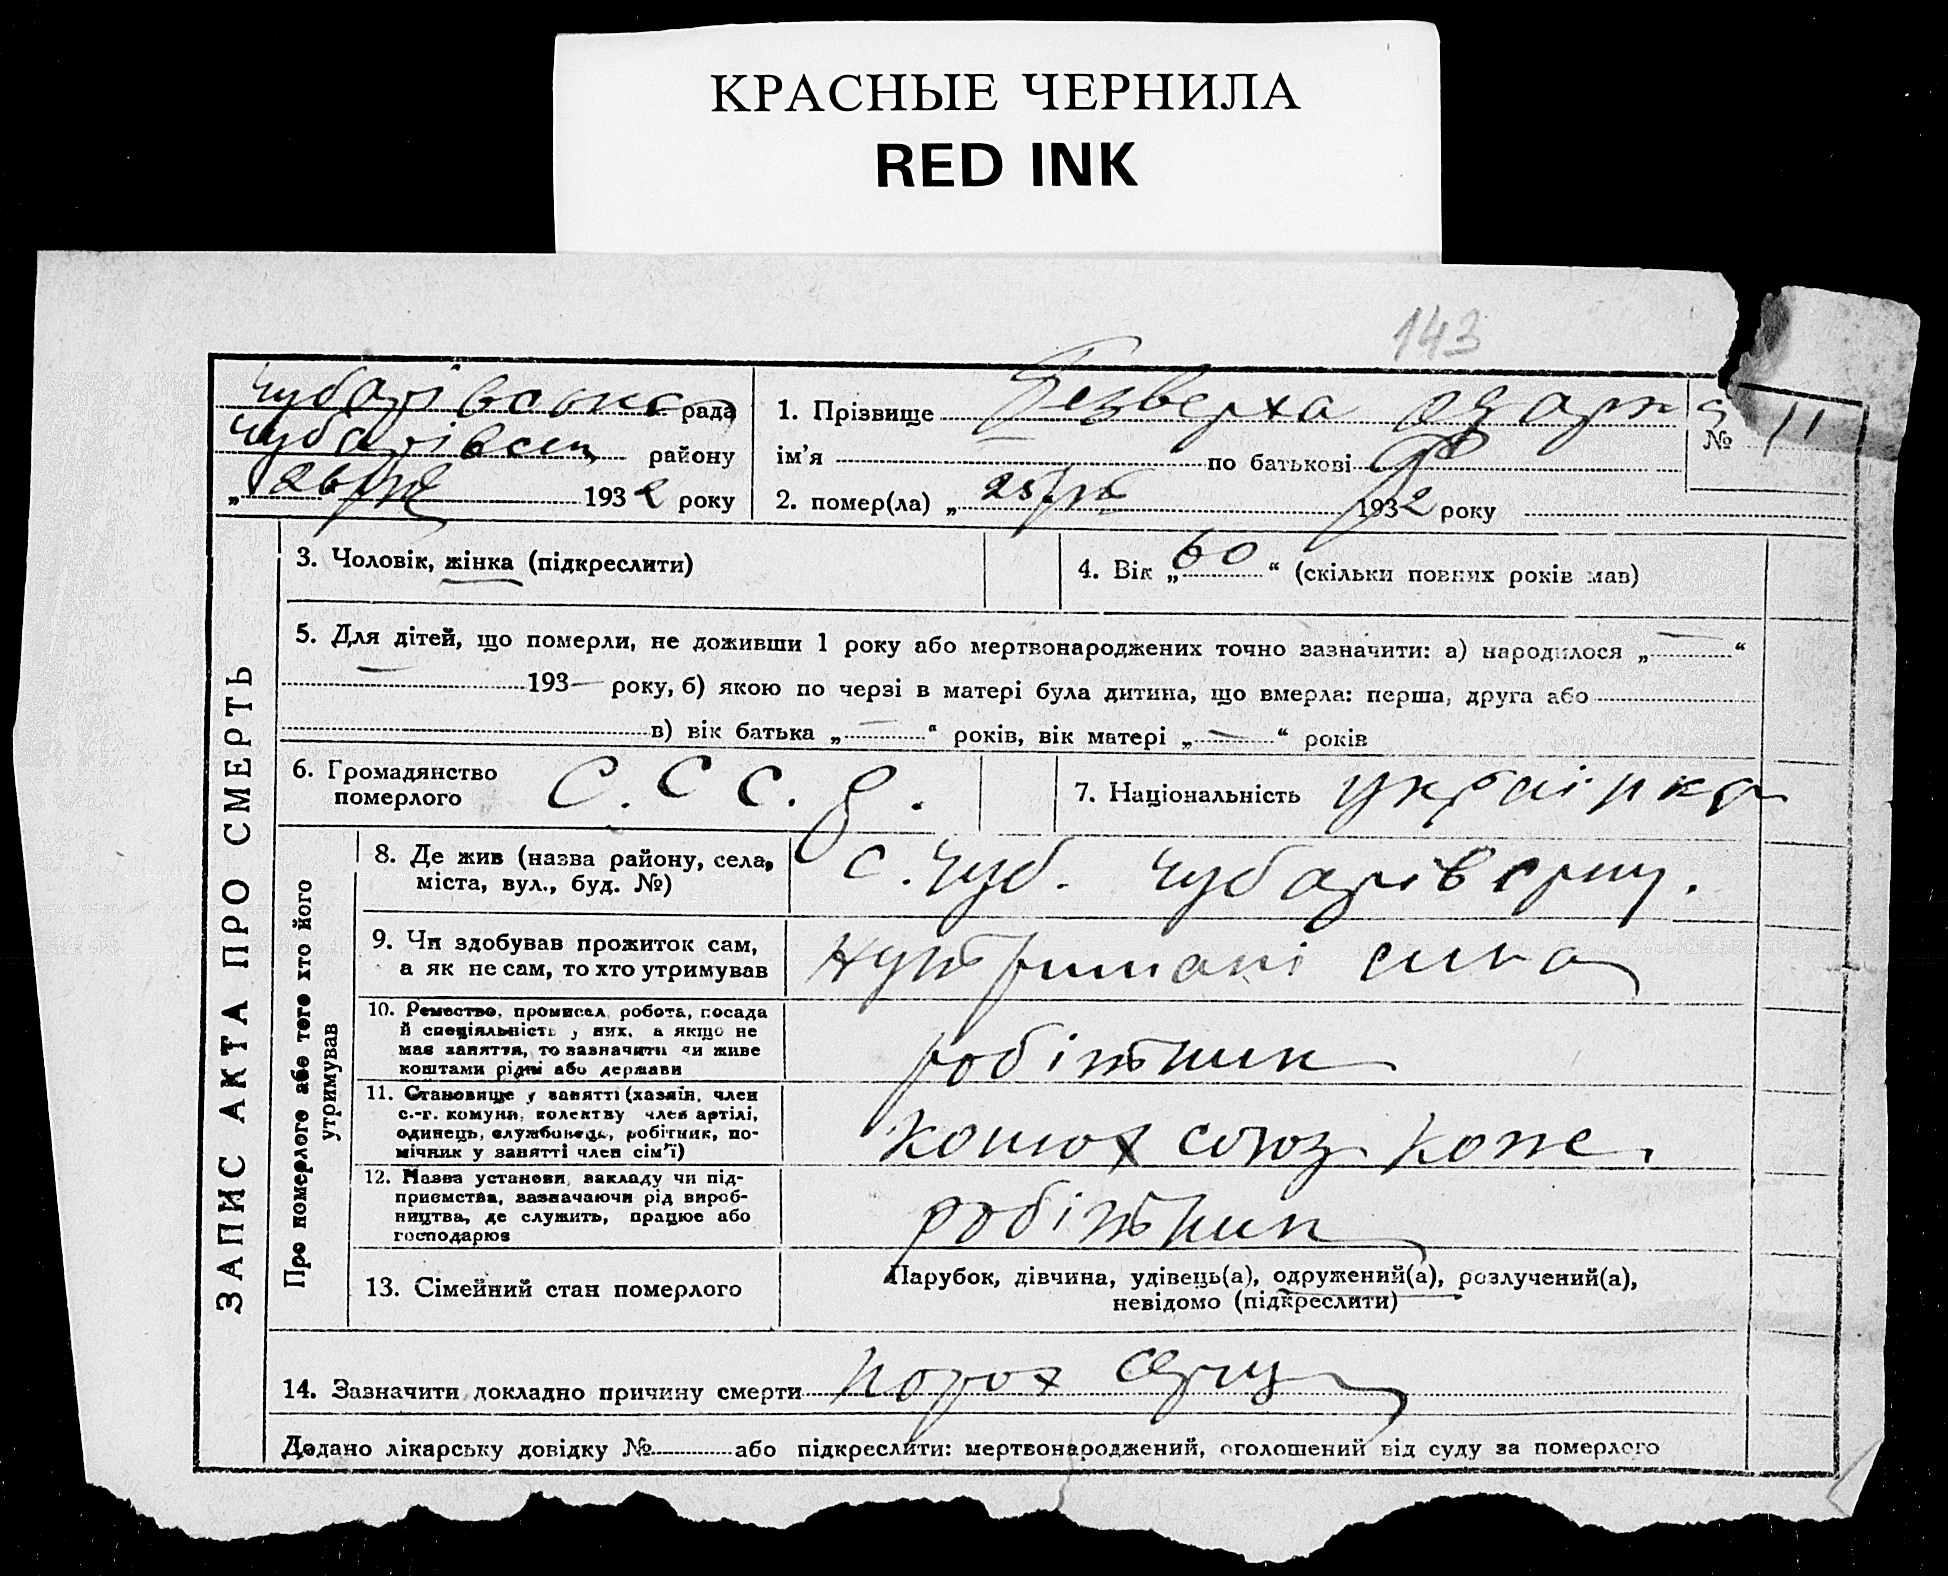 КРАСНЫЕ ЧЕРНИЛА
RED INK
143
Чубарівська рада
Чубарівськ району
" 26/ 1932 року
1. Прізвище Безверха
ім'я по батькові
2. помер(ла) „ 25/ 1932 року
№ 11
ЗАПИС АКТА ПРО СМЕРТЬ
3. Чоловік, жінка (підкреслити)
4. Вік „ 60 “ (скільки повних років мав)
5. Для дітей, що померли, не доживши 1 року або мертвонароджених точно зазначити: а) народилося „ — “
— 193— року, б) якою по черзі в матері була дитина, що вмерла: перша, друга або
в) вік батька „ — “ років, вік матері „ — “ років
6. Громадянство
померлого
С.С.С.Р.
7. Національність українка
Про померлого або того хто його
утримував
8. Де жив (назва району, села,
міста, вул., буд. №)
с. Чуб. Чубарівськ.
9. Чи здобував прожиток сам,
а як не сам, то хто утримував
сина
10. Ремество, промисел, робота, посада
й спеціяльність у них, а якщо не
має заняття, то зазначити чи живе
коштами рідні або держави
робітник
11. Становище у занятті (хазяїн, член
с.-г. комуни, колективу член артілі,
одинець, службовець, робітник, по-
мічник у занятті член сім'ї)
конюх союз коже.
12. Назва установи, закладу чи під-
приємства, зазначаючи рід вироб-
ництва, де служить, працює або
господарює
робітник
13. Сімейний стан померлого
Парубок, дівчина, удівець(а), одружений(а), розлучений(а),
невідомо (підкреслити)
14. Зазначити докладно причину смерти порох серця
Додано лікарську довідку № або підкреслити: мертвонароджений, оголошений від суду за померлого